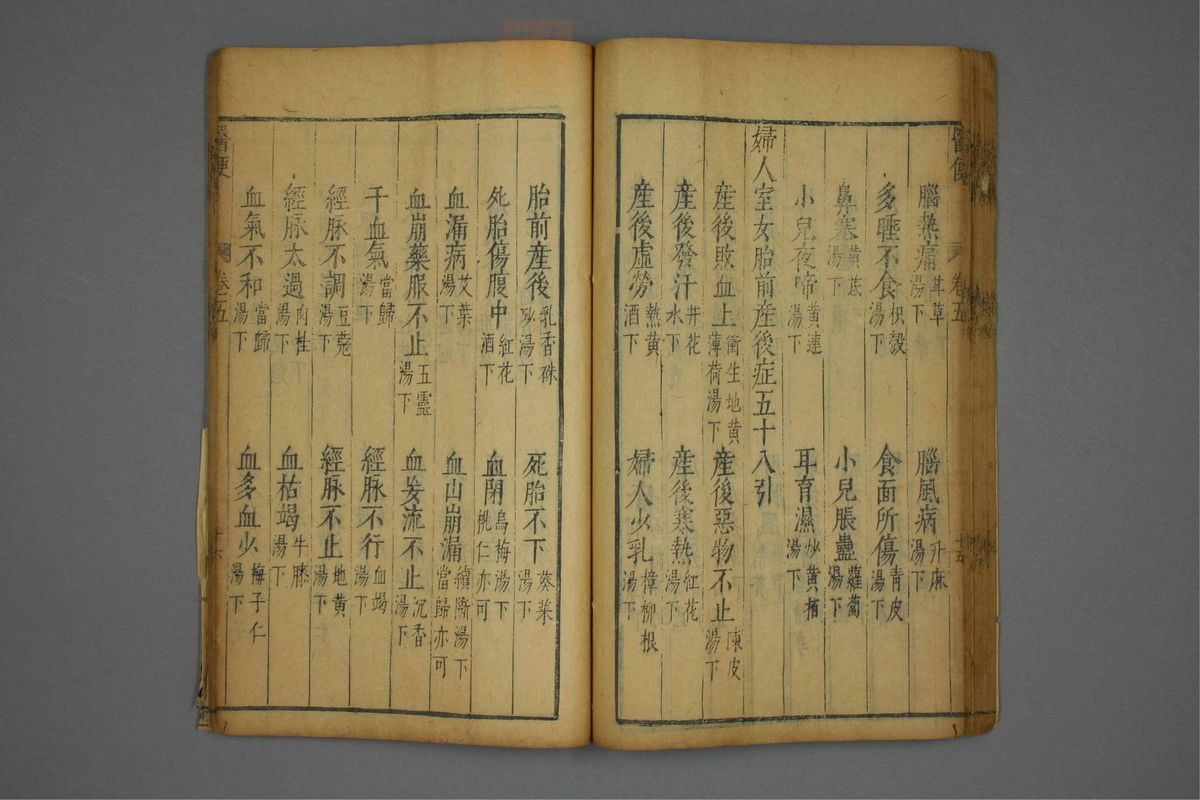 醫便 卷五 十五
腦熱痛茸草湯下 腦風病升麻湯下
多睡不食枳殼湯下 食面所傷青皮湯下
鼻塞黃芪湯下 小兒脹蠱蘿蔔湯下
小兒夜啼黃連湯下 耳育濕炒黃栢湯下
婦人室女胎前產後症五十八引
產後敗血上衝生地黃薄荷湯下 產後惡物不止陳皮湯下
產後發汗井花水下 產後寒熱紅花湯下
產後虛勞熱黃酒下 婦人少乳樟柳根湯下
胎前產後乳香硃砂湯下 死胎不下葵菜湯下
死胎傷腹中紅花酒下 血閉烏梅湯下桃仁亦可
血漏病艾葉湯下 血山崩漏續斷湯下當歸亦可
血崩藥服不止五靈湯下 血妄流不止沉香湯下
干血氣當歸湯下 經脉不行血竭湯下
經脉不調豆蔻湯下 經脉不止地黃湯下
經脉太過肉桂湯下 血枯竭牛膝湯下
血氣不和當歸湯下 血多血少梅子仁湯下
醫便 卷五 十六